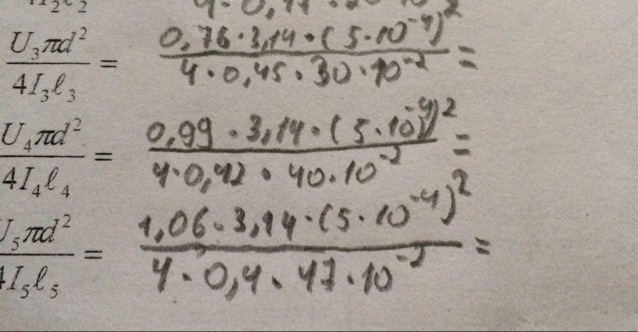 U₃πd² / 4I₃ℓ₃ = 0,76·3,14·(5·10⁻⁴)² / 4·0,45·30·10⁻² =
U₄πd² / 4I₄ℓ₄ = 0,99·3,14·(5·10⁻⁴)² / 4·0,42·40·10⁻² =
U₅πd² / 4I₅ℓ₅ = 1,06·3,14·(5·10⁻⁴)² / 4·0,4·47·10⁻² =